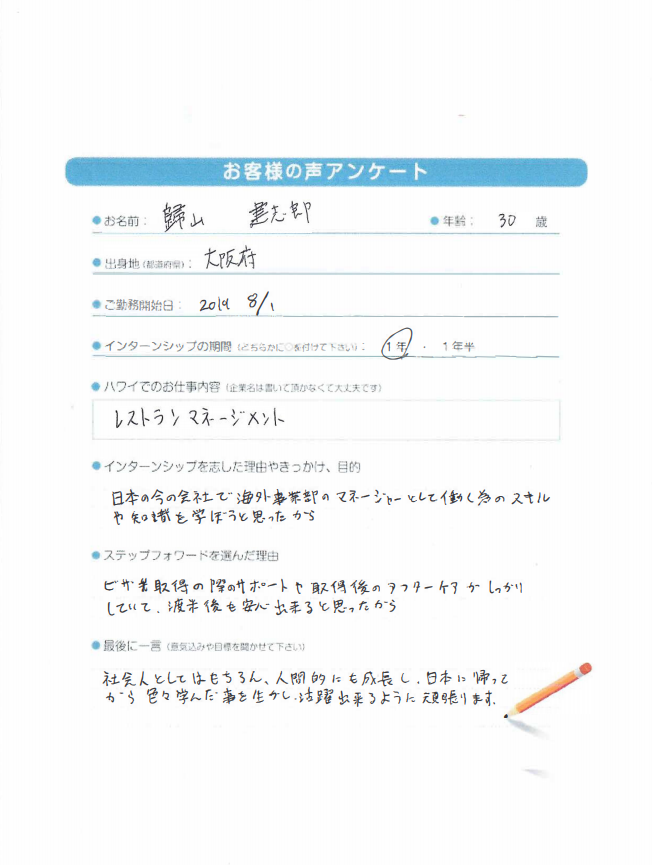 お客様の声アンケート
●お名前： 歸山 憲志郎 ●年齢： 30 歳
●出身地(都道府県)： 大阪府
●ご勤務開始日： 2019 8/1
●インターンシップの期間（どちらかに○を付けて下さい）： 1年 ・ 1年半
●ハワイでのお仕事内容（企業名は書いて頂かなくて大丈夫です）
レストランマネージメント
●インターンシップを志した理由やきっかけ、目的
日本の今の会社で海外事業部のマネージャーとして働く為のスキル
や知識を学ぼうと思ったから
●ステップフォワードを選んだ理由
ビザ取得の際のサポートや取得後のアフターケアがしっかり
していて、渡米後も安心出来ると思ったから
●最後に一言（意気込みや目標を聞かせて下さい）
社会人としてはもちろん、人間的にも成長し、日本に帰って
から色々学んだ事を生かし、活躍出来るように頑張ります。